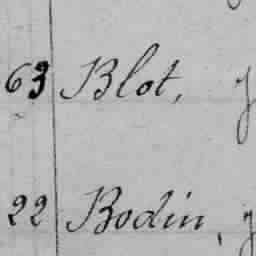 63 Blot,
22 Bodin,